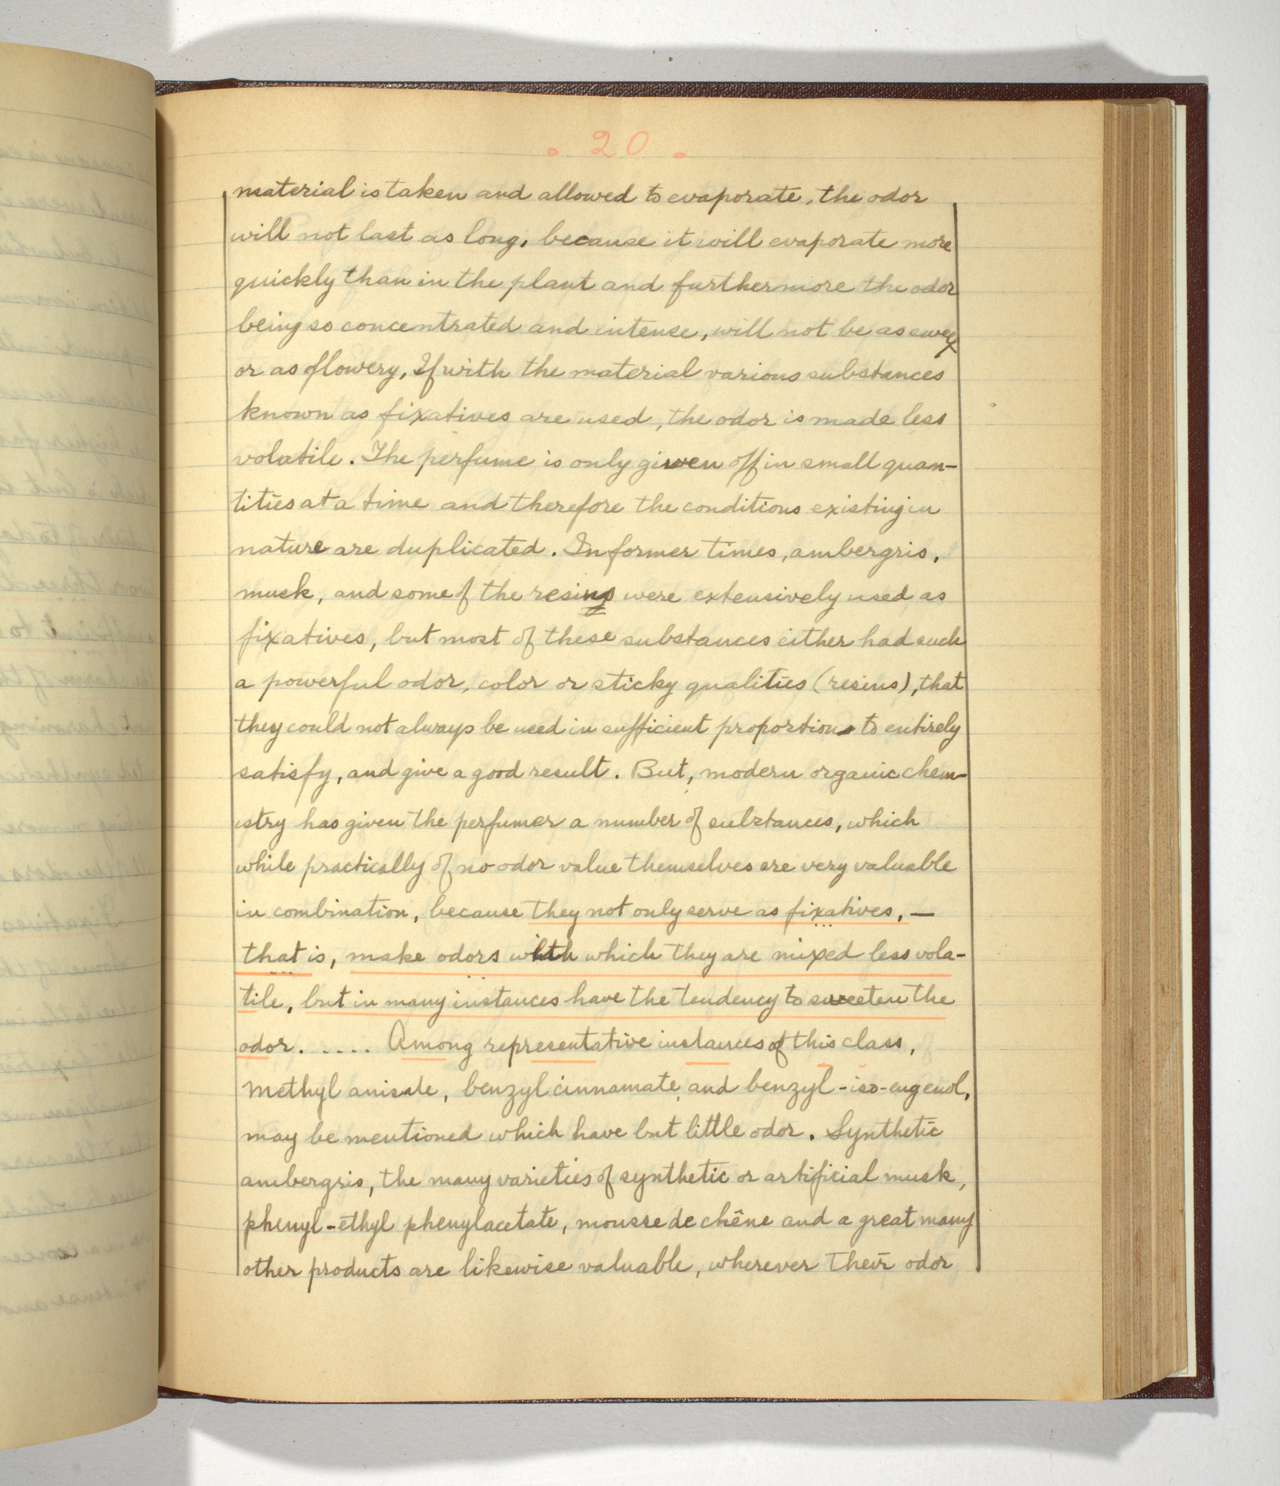 . 20 .
material is taken and allowed to evaporate, the odor
will not last as long, because it will evaporate more
quickly than in the plant and furthermore the odor
being so concentrated and intense, will not be as sweet
or as flowery, If with the material various substances
known as fixatives are used, the odor is made less
volatile. The perfume is only given off in small quan-
tities at a time and therefore the conditions existing in
nature are duplicated. In former times, ambergris,
musk, and some of the resins were extensively used as
fixatives, but most of these substances either had such
a powerful odor, color or sticky qualities (resins), that
they could not always be used in sufficient proportions to entirely
satisfy, and give a good result. But, modern organic chem-
istry has given the perfumer a number of substances, which
while practically of no odor value themselves are very valuable
in combination, because they not only serve as fixatives, —
that is, make odors with which they are mixed less vola-
tile, but in many instances have the tendency to sweeten the
odor. .... Among representative instances of this class,
methyl anisate, benzyl cinnamate, and benzyl-iso-eugenol,
may be mentioned which have but little odor. Synthetic
ambergris, the many varieties of synthetic or artificial musk,
phenyl-ethyl phenylacetate, mousse de chêne and a great many
other products are likewise valuable, wherever their odor